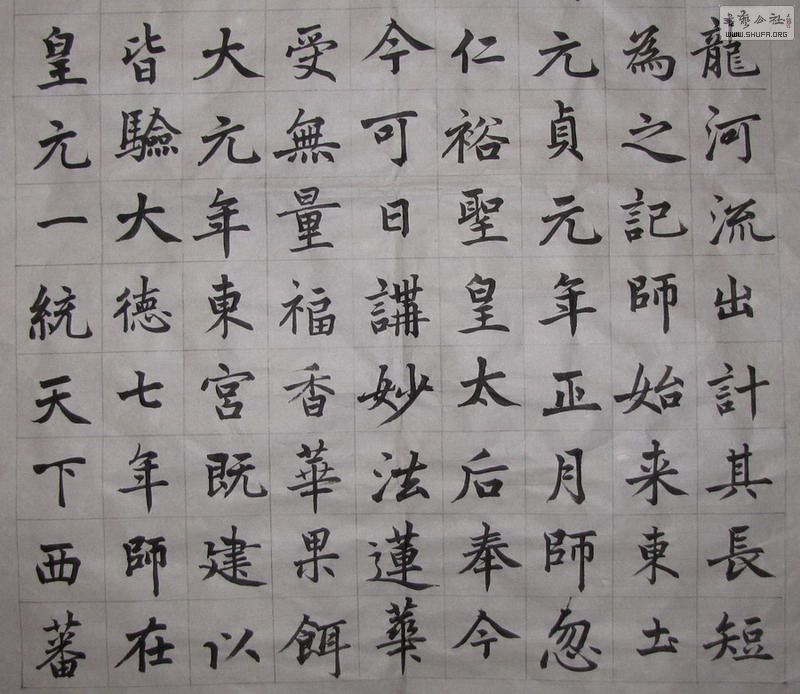 龍河流出計其長短
為之記師始来東土
元貞元年正月師忽
仁裕聖皇太后奉今
今可日講妙法蓮華
受無量福香華果餌
大元年東宮既建以
皆驗大德七年師在
皇元一統天下西蕃
书艺公社
WWW.SHUFA.ORG